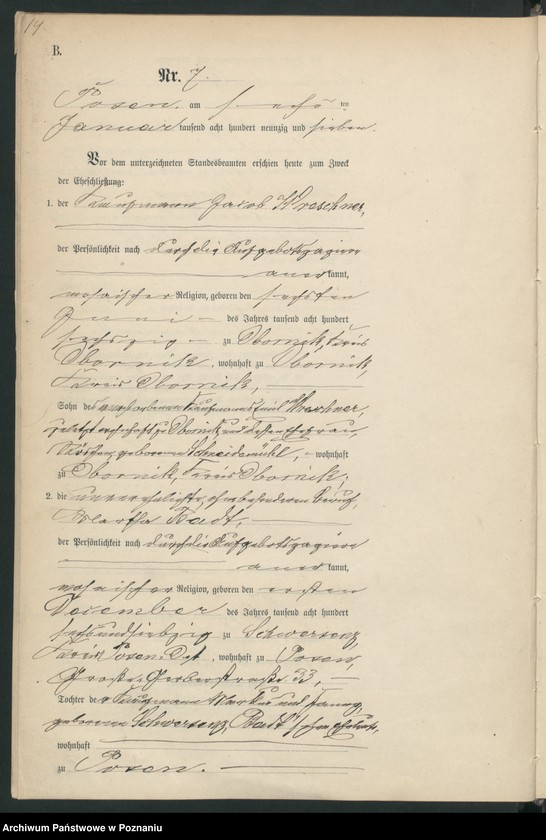 14.
B.
Nr. 7.
Posen, am sechs ten
Januar tausend acht hundert neunzig und sieben.
Vor dem unterzeichneten Standesbeamten erschien heute zum Zweck
der Eheschließung:
1. der Kaufmann Jacob Kroschner,
der Persönlichkeit nach durch die Aufgebotspapiere
aner kannt,
mosaischer Religion, geboren den sechsten
Juni des Jahres tausend acht hundert
sechszig zu Obornik, Kreis
Obornik, wohnhaft zu Obornik,
Kreis Obornik,
Sohn des verstorbenen Kaufmanns Kroschner,
zuletzt wohnhaft zu Obornik, und dessen Ehefrau,
geborenen Schneidemühl, wohnhaft
zu Obornik, Kreis Obornik;
2. die unverehelichte, ohne besonderen Beruf,
Martha Badt,
der Persönlichkeit nach durch die Aufgebotspapiere
aner kannt,
mosaischer Religion, geboren den ersten
December des Jahres tausend acht hundert
undsiebzig zu Schwersenz,
Kreis Posen-Ost, wohnhaft zu Posen,
Große Gerberstraße 33,
Tochter der Kaufmann Markus und Fanny,
geborenen Schwersenz, Badt'schen Eheleute,
wohnhaft
zu Posen.
Archiwum Państwowe w Poznaniu
szukajwarchiwach.pl